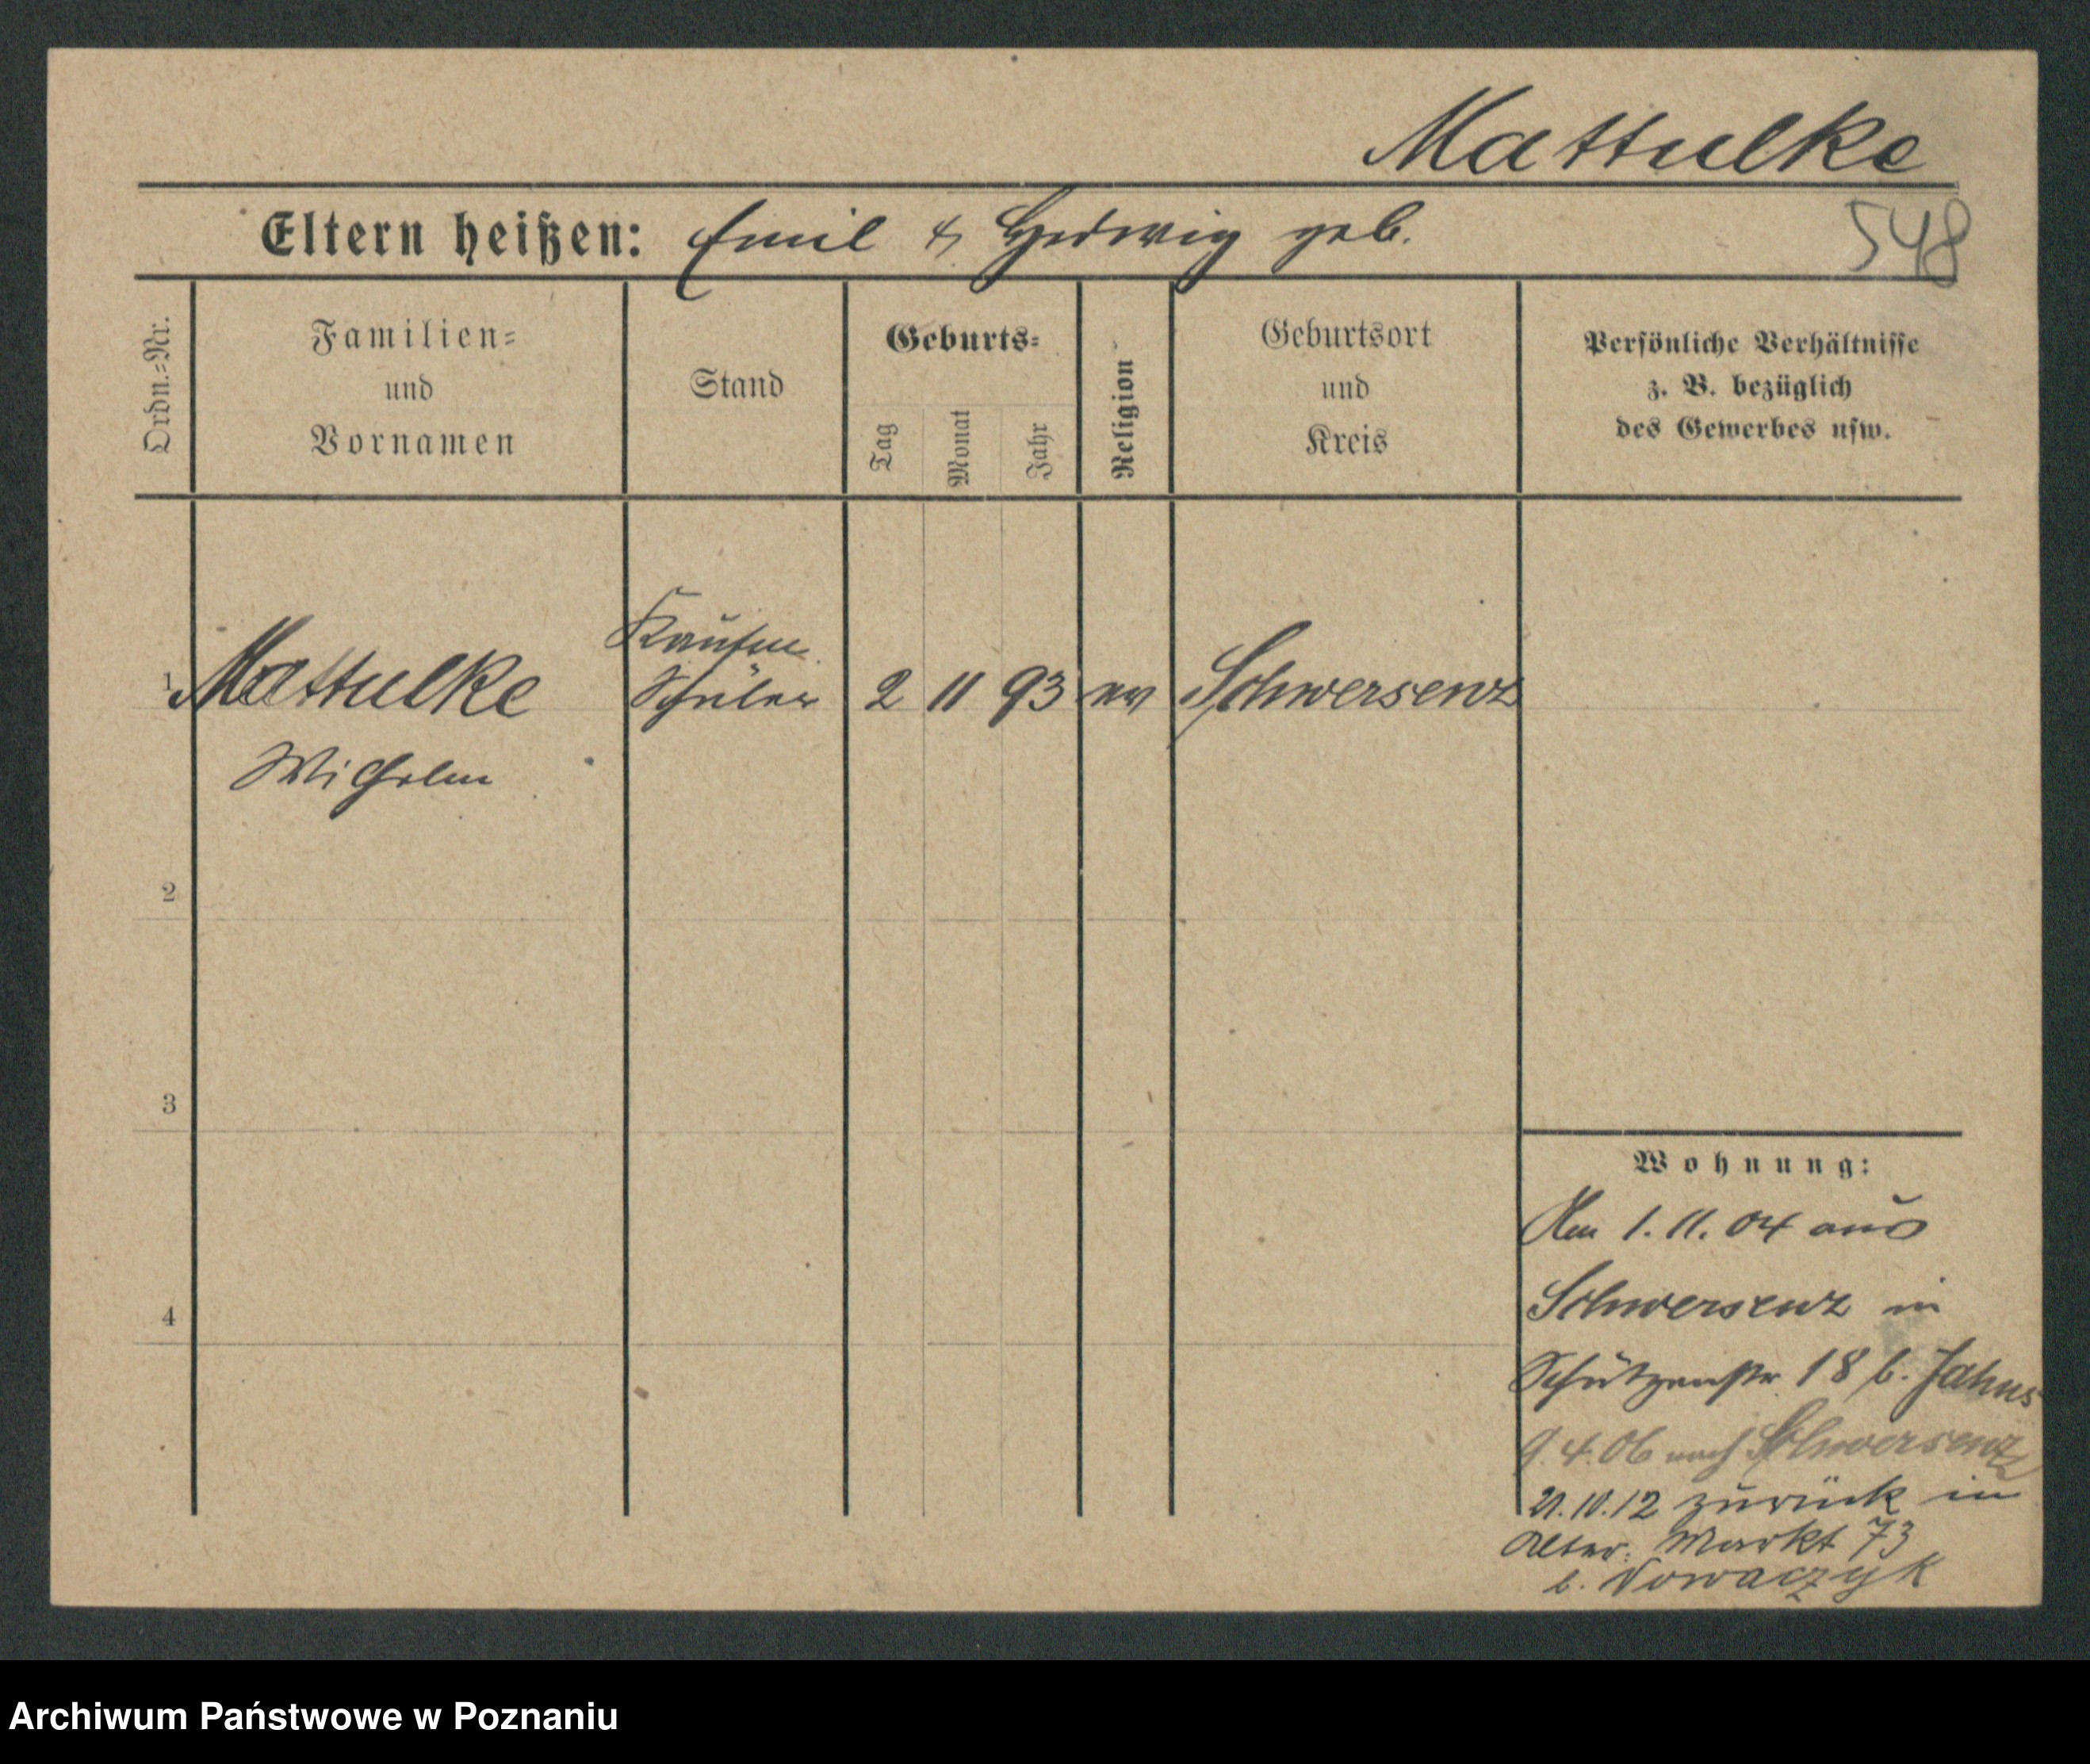 Mattulke
Eltern heißen: Emil & Hedwig geb.
548
Ordn.=Nr.
Familien=
und
Vornamen
Stand
Geburts=
Tag
Monat
Jahr
Religion
Geburtsort
und
Kreis
Persönliche Verhältnisse
z. B. bezüglich
des Gewerbes usw.
Kaufm.
1 Mattulke Schüler 2 11 93 ev Schwersenz
Wilhelm
2
3
4
Wohnung:
Am 1. 11. 04 aus
Schwersenz in
Schützenstr. 18 b. Jahns
9. 4. 06 nach Schwersenz
21. 10. 12 zurück in
Alter. Markt 73
b. Nowaczyk
Archiwum Państwowe w Poznaniu